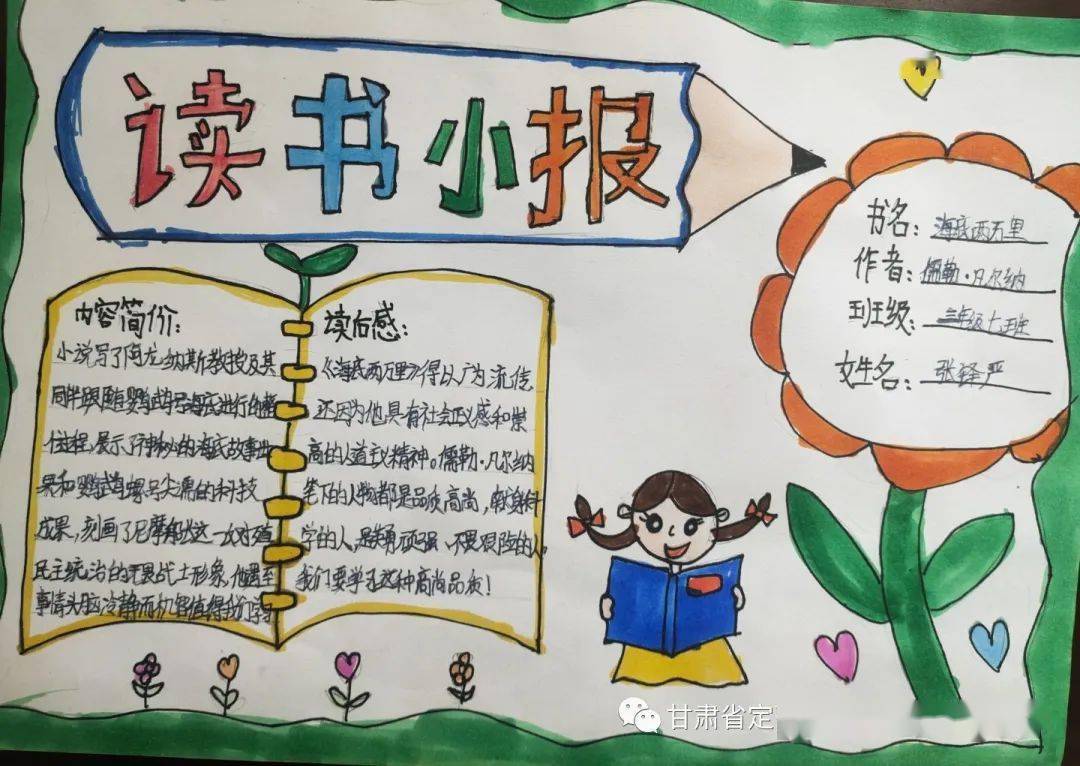 读书小报
书名：海底两万里
作者：儒勒·凡尔纳
班级：三年级七班
女生名：张铎严
内容简价：
小说写了阿龙纳斯教授及其
同伴跟随鹦鹉号海底进行的
往程，展示了神秘的海底故事
果和鹦鹉螺号尖端的科技
成果，刻画了尼摩船长这一位对殖
民主统治的无畏战士形象，他遇至
事情头脑冷静而机智值得我们学习
读后感：
《海底两万里》得以广为流传
还因为他具有社会正义感和崇
高的人道主义精神。儒勒·凡尔纳
笔下的人物都是品质高尚，献身科
学的人，是勇顽强、不畏艰险的人，
我们要学习这种高尚品质！
甘肃省定